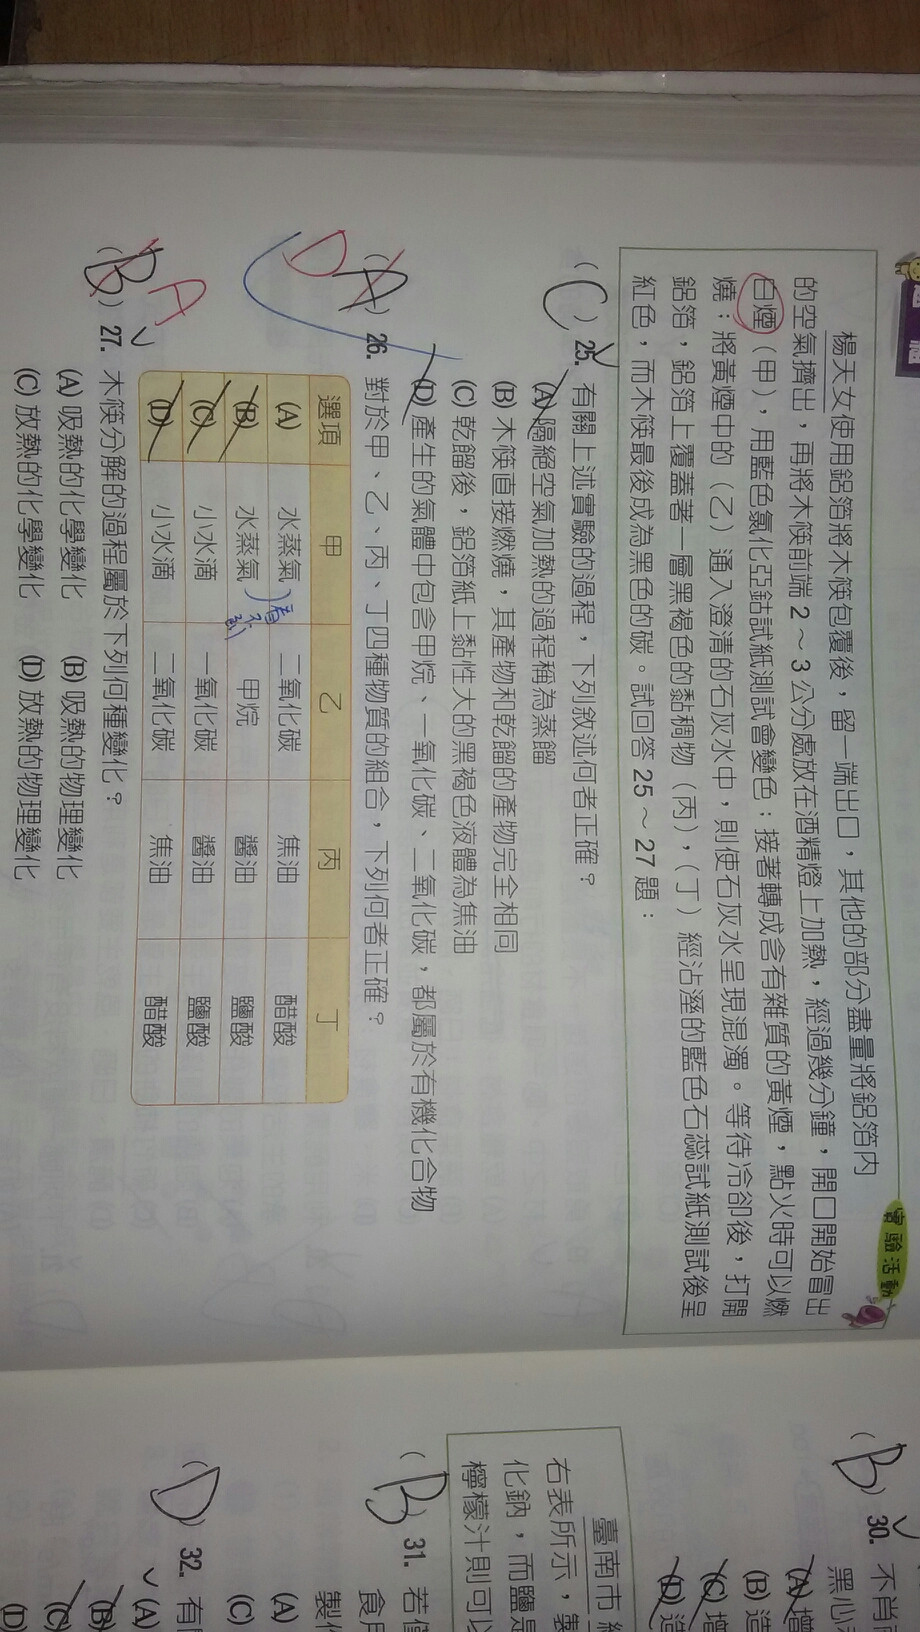 實驗活動
楊天女使用鋁箔將木筷包覆後，留一端出口，其他的部分盡量將鋁箔內
的空氣擠出，再將木筷前端 2～3 公分處放在酒精燈上加熱，經過幾分鐘，開口開始冒出
白煙（甲），用藍色氯化亞鈷試紙測試會變色；接著轉成含有雜質的黃煙，點火時可以燃
燒；將黃煙中的（乙）通入澄清的石灰水中，則使石灰水呈現混濁。等待冷卻後，打開
鋁箔，鋁箔上覆蓋著一層黑褐色的黏稠物（丙），（丁）經沾溼的藍色石蕊試紙測試後呈
紅色，而木筷最後成為黑色的碳。試回答 25～27 題：
(C) 25. 有關上述實驗的過程，下列敘述何者正確？
(A) 隔絕空氣加熱的過程稱為蒸餾
(B) 木筷直接燃燒，其產物和乾餾的產物完全相同
(C) 乾餾後，鋁箔紙上黏性大的黑褐色液體為焦油
(D) 產生的氣體中包含甲烷、一氧化碳、二氧化碳，都屬於有機化合物
D (A) 26. 對於甲、乙、丙、丁四種物質的組合，下列何者正確？
選項 甲 乙 丙 丁
(A) 水蒸氣 二氧化碳 焦油 醋酸
(B) 水蒸氣 甲烷 醬油 鹽酸
看不到
(C) 小水滴 一氧化碳 醬油 鹽酸
(D) 小水滴 二氧化碳 焦油 醋酸
(B) A 27. 木筷分解的過程屬於下列何種變化？
(A) 吸熱的化學變化 (B) 吸熱的物理變化
(C) 放熱的化學變化 (D) 放熱的物理變化
(B) 30. 不肖
黑心
(A) 增
(B) 造
(C) 增
(D) 造
臺南市
右表所示，製
化鈉，而鹽是
檸檬汁則可以
(B) 31. 若
食
製
(A)
(C)
(D) 32. 有
(A)
(B)
(C)
(D)